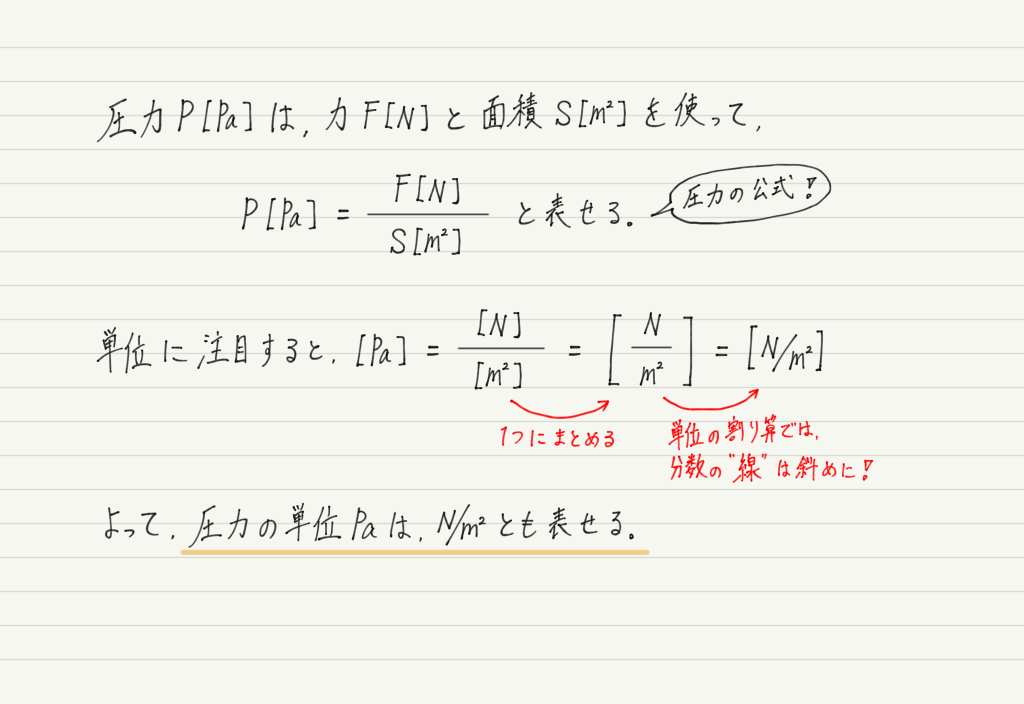 圧力 P[Pa] は, 力 F[N] と 面積 S[m²] を 使って,
P[Pa] = F[N] / S[m²] と表せる。 圧力の公式!
単位に注目すると, [Pa] = [N] / [m²] = [N / m²] = [N/m²]
1つにまとめる
単位の割り算では,
分数の"線"は斜めに!
よって, 圧力の単位 Pa は, N/m² とも表せる。